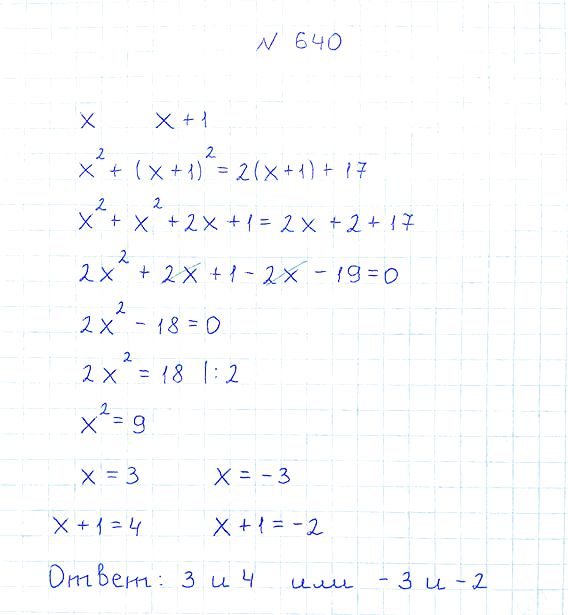 N 640
x x + 1
x² + (x+1)² = 2(x+1) + 17
x² + x² + 2x + 1 = 2x + 2 + 17
2x² + 2x + 1 - 2x - 19 = 0
2x² - 18 = 0
2x² = 18 |: 2
x² = 9
x = 3 x = -3
x + 1 = 4 x + 1 = -2
Ответ: 3 и 4 или -3 и -2